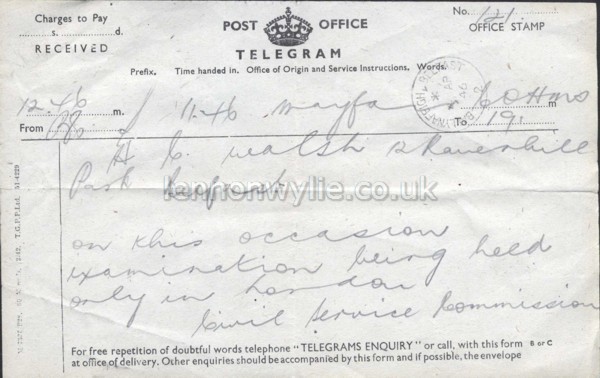 Charges to Pay
s. d.
RECEIVED
POST OFFICE
TELEGRAM
No. 121
OFFICE STAMP
Prefix. Time handed in. Office of Origin and Service Instructions. Words.
12.46 m. 11.46 mayfair OHMS m
From To 19
H C. Walsh 2 Ravenhill
Park Belfast
lennonwylie.co.uk
on this occasion
examination being held
only in London
Civil Service Commission
For free repetition of doubtful words telephone "TELEGRAMS ENQUIRY" or call, with this form B or C
at office of delivery. Other enquiries should be accompanied by this form and if possible, the envelope